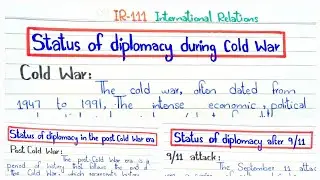 IR-111 International Relations
Status of diplomacy during Cold War
Cold War:
The cold war, often dated from
1947 to 1991, The intense economic, political
Status of diplomacy in the post Cold War era
Post Cold War:
The post-Cold War era is a
period of history that follows the end of
the Cold War, which represents
Status of diplomacy after 9/11
9/11 attack:
The September 11 attack